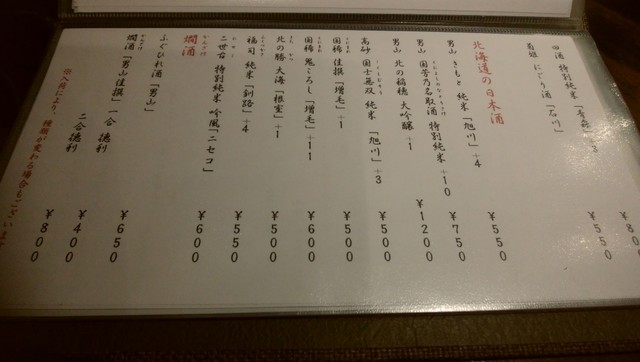 田酒 特別純米「青森」 ¥800
菊姫 にごり酒「石川」 ¥550
北海道の日本酒
男山 きもと 純米「旭川」+4 ¥550
男山 国芳乃名取酒 特別純米 +10 ¥750
男山 北の稲穂 大吟醸 +1 ¥1200
高砂 国士無双 純米「旭川」+3 ¥500
国稀 佳撰「増毛」+1 ¥500
国稀 鬼ころし「増毛」+11 ¥600
北の勝 大海「根室」+1 ¥500
福司 純米「釧路」+4 ¥550
二世古 特別純米 吟風「ニセコ」 ¥600
燗酒
ふぐひれ酒「男山」 ¥650
燗酒「男山佳撰」一合 徳利 ¥400
二合徳利 ¥800
※入荷により、種類が変わる場合もございます